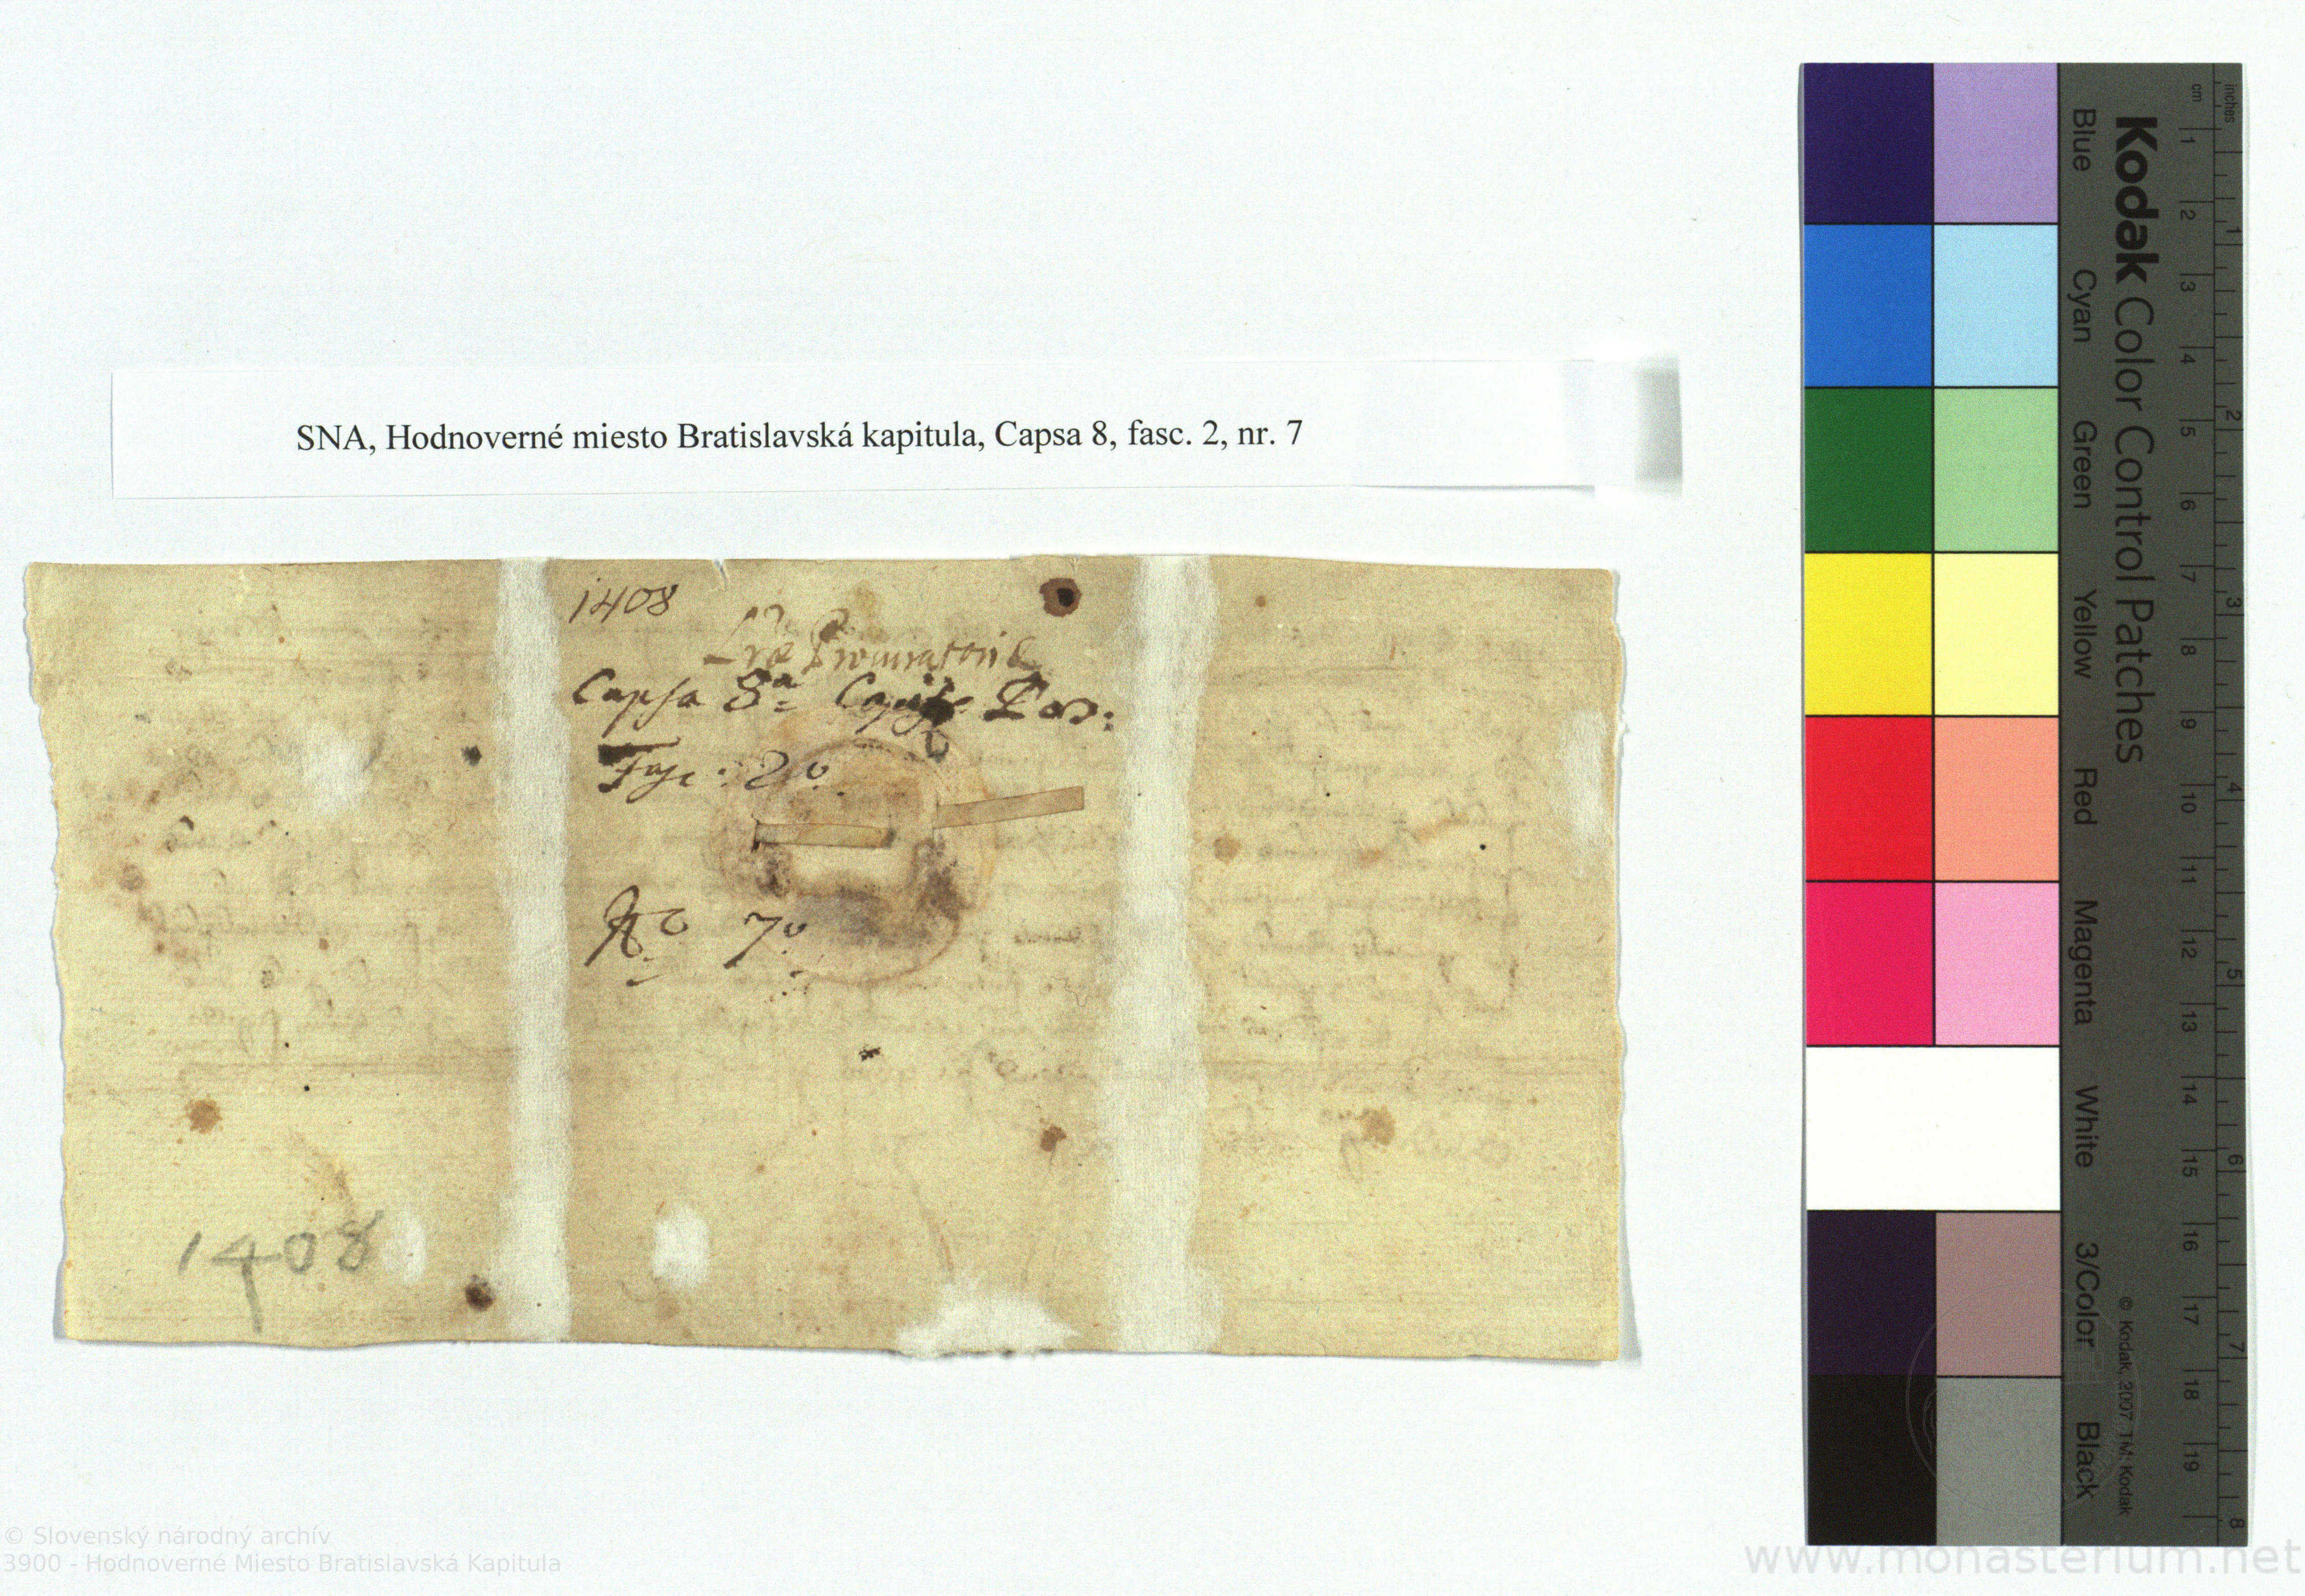 SNA, Hodnoverné miesto Bratislavská kapitula, Capsa 8, fasc. 2, nr. 7
1408
Lræ Procuratoriæ
Capsa 8ª
Fasc: 2º
Nº 7º
1408
Kodak Color Control Patches
Blue Cyan Green Yellow Red Magenta White 3/Color Black
© Kodak, 2007 TM: Kodak
cm 1 2 3 4 5 6 7 8 9 10 11 12 13 14 15 16 17 18 19
inches 1 2 3 4 5 6 7 8
© Slovenský národný archív
3900 - Hodnoverné Miesto Bratislavská Kapitula
www.monasterium.net